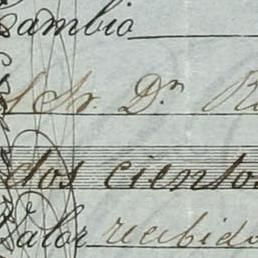 Cambio
Sr. Dn. R
dos cientos
Valor recibido